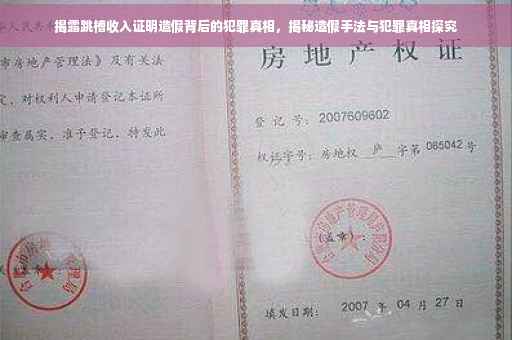 揭露跳槽收入证明造假背后的犯罪真相，揭秘造假手法与犯罪真相探究
人民共
市房地产管理法》及有关法
定，对权利人申请登记本证所
审查属实，准予登记，特发此
房地产权证
登记号：2007609602
权证字号：房地权 庐 字第 065042 号
(盖章)：
填发日期：2007 年 04 月 27 日